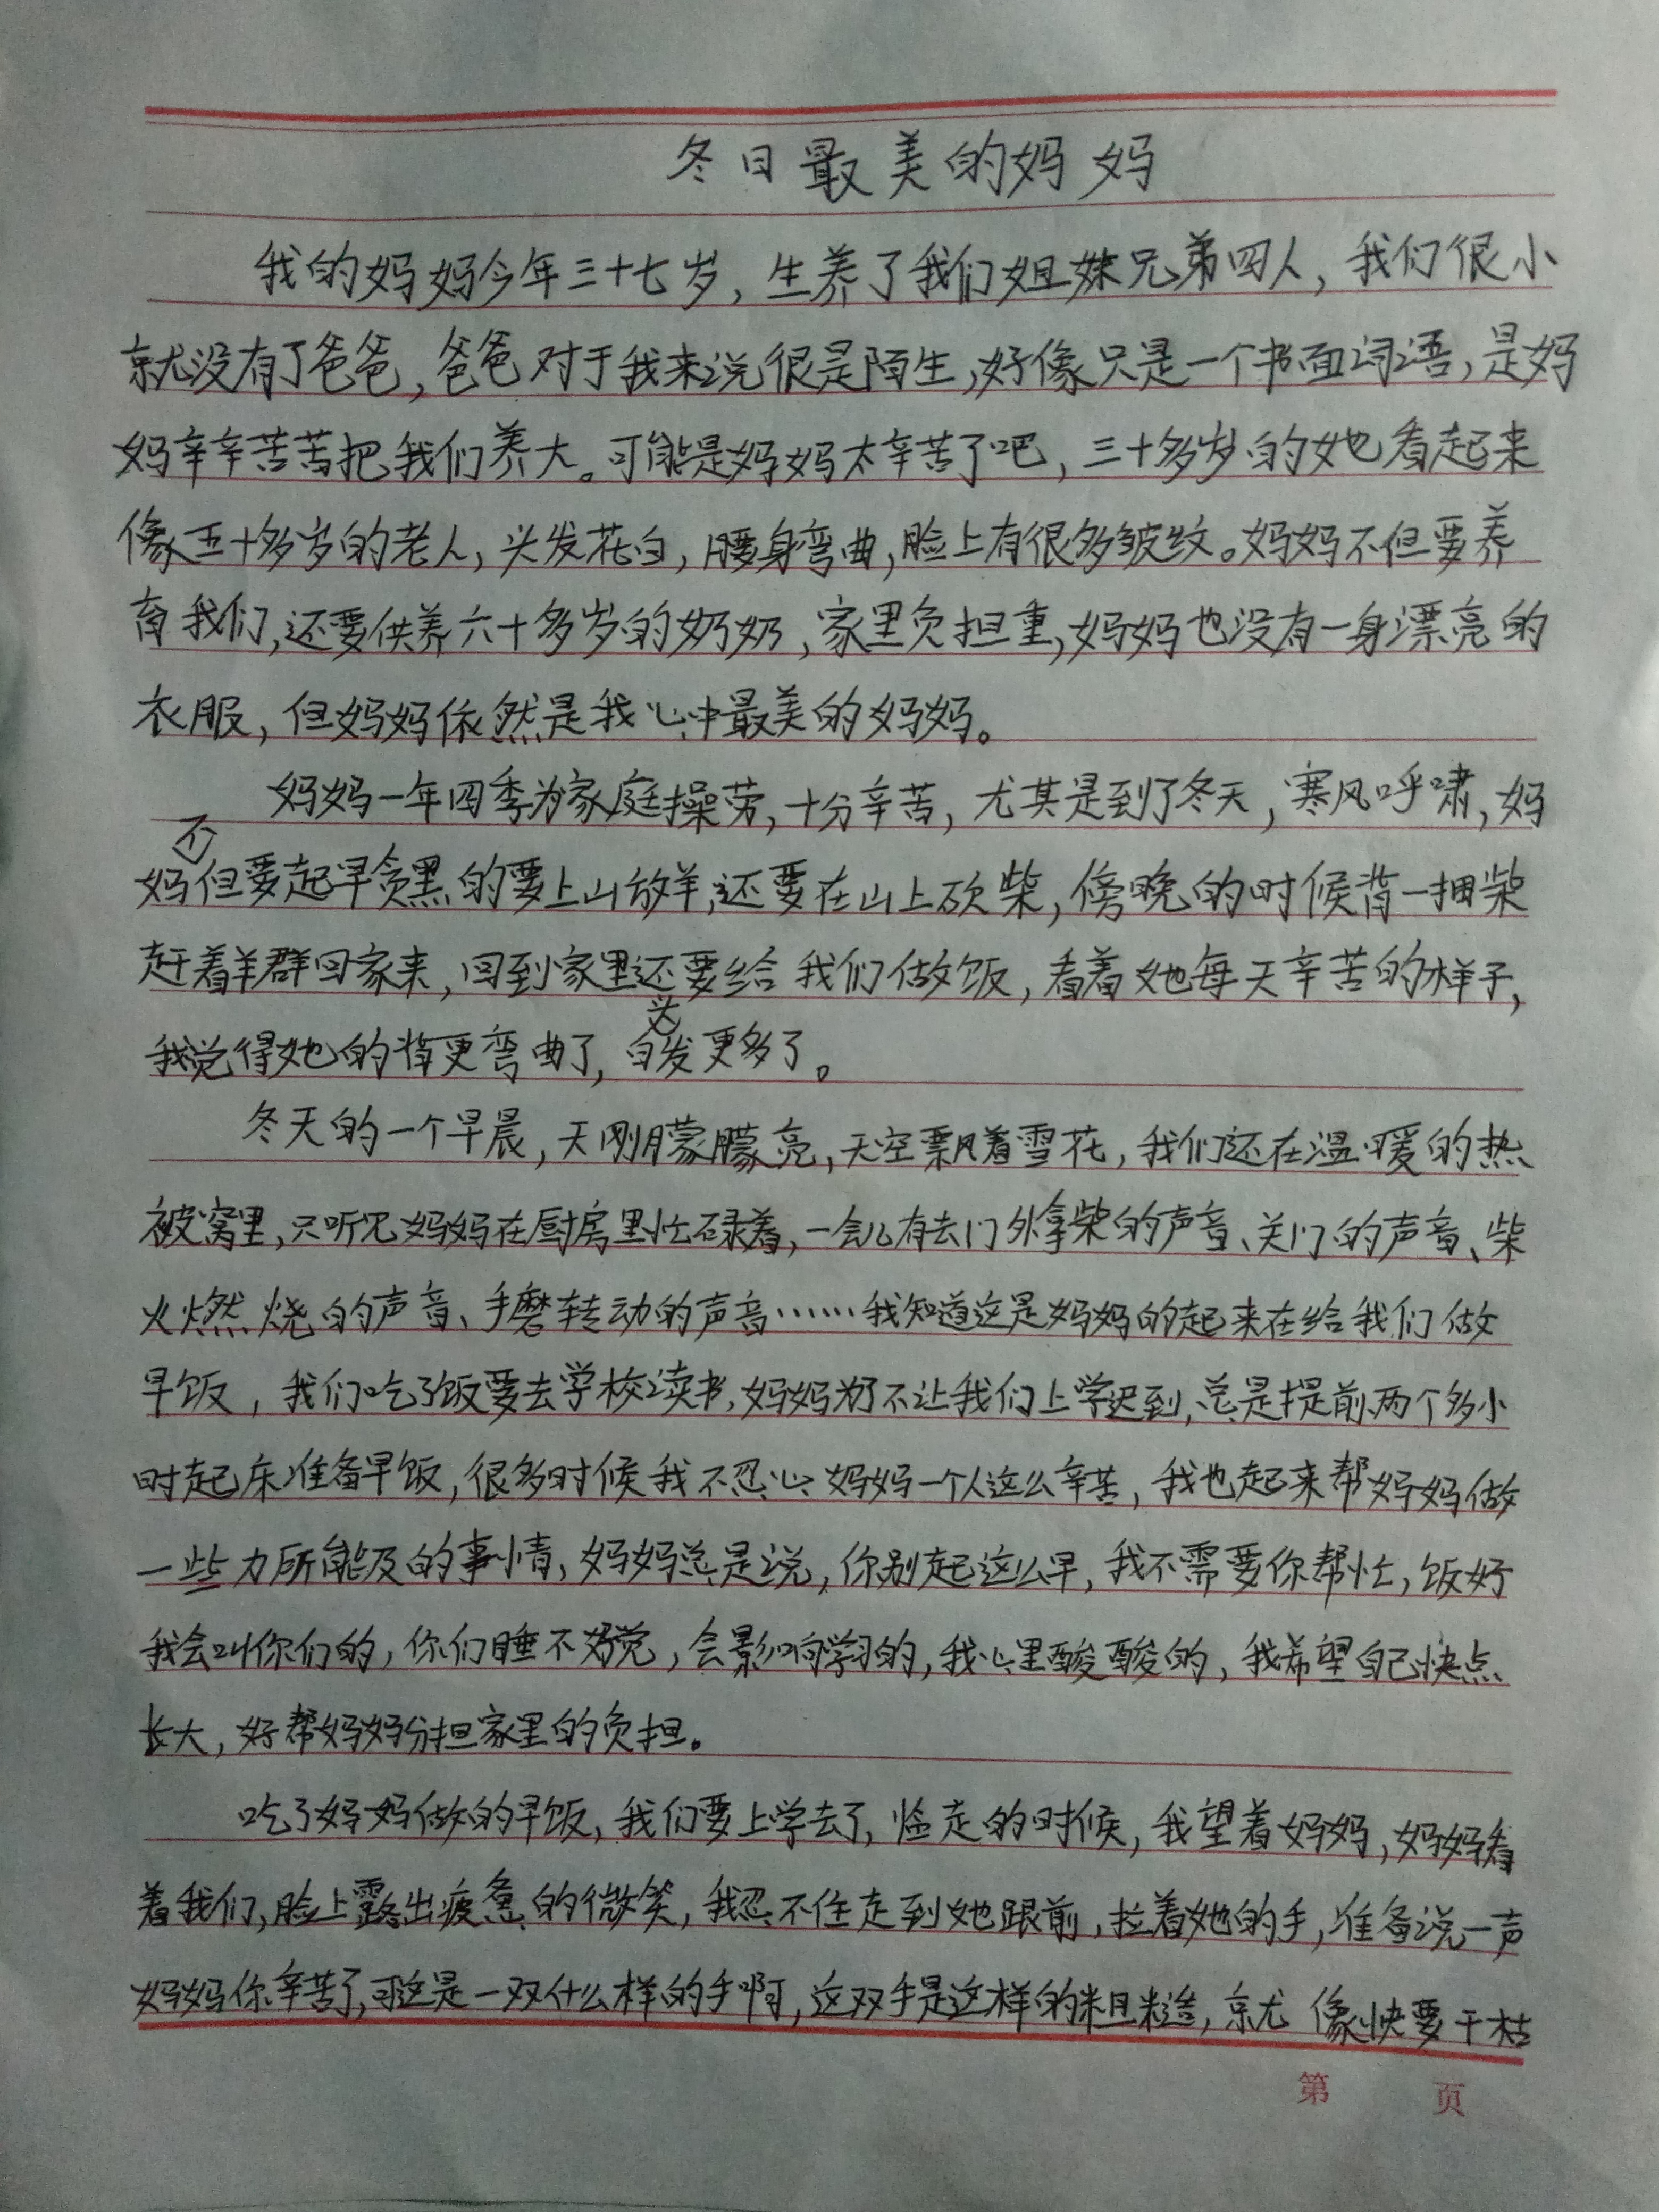 冬日最美的妈妈
我的妈妈今年三十七岁，生养了我们姐妹兄弟四人，我们很小
就没有了爸爸，爸爸对于我来说很是陌生，好像只是一个书面词语，是妈
妈辛辛苦苦把我们养大。可能是妈妈太辛苦了吧，三十多岁的她看起来
像五十多岁的老人，头发花白，腰身弯曲，脸上有很多皱纹。妈妈不但要养
育我们，还要供养六十多岁的奶奶，家里负担重，妈妈也没有一身漂亮的
衣服，但妈妈依然是我心中最美的妈妈。
妈妈一年四季为家庭操劳，十分辛苦，尤其是到了冬天，寒风呼啸，妈
妈不但要起早贪黑的要上山放羊，还要在山上砍柴，傍晚的时候背一捆柴
赶着羊群回家来，回到家里还要给我们做饭，看着她每天辛苦的样子，
我觉得她的背更弯曲了，白头发更多了。
冬天的一个早晨，天刚朦朦亮，天空飘着雪花，我们还在温暖的热
被窝里，只听见妈妈在厨房里忙碌着，一会儿有去门外拿柴的声音、关门的声音、柴
火燃烧的声音、手磨转动的声音……我知道这是妈妈的起来在给我们做
早饭，我们吃了饭要去学校读书，妈妈为了不让我们上学迟到，总是提前两个多小
时起床准备早饭，很多时候我不忍心妈妈一个人这么辛苦，我也起来帮妈妈做
一些力所能及的事情，妈妈总是说，你别起这么早，我不需要你帮忙，饭好
我会叫你们的，你们睡不好觉，会影响学习的，我心里酸酸的，我希望自己快点
长大，好帮妈妈分担家里的负担。
吃了妈妈做的早饭，我们要上学去了，临走的时候，我望着妈妈，妈妈看
着我们，脸上露出疲惫的微笑，我忍不住走到她跟前，拉着她的手，准备说一声
妈妈你辛苦了，可这是一双什么样的手啊，这双手是这样的粗糙，就像快要干枯
第 页